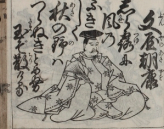 文屋朝康
しら露に
風の
ふきしく
秋の野ハ
つらぬきとめぬ
玉ぞ散りける